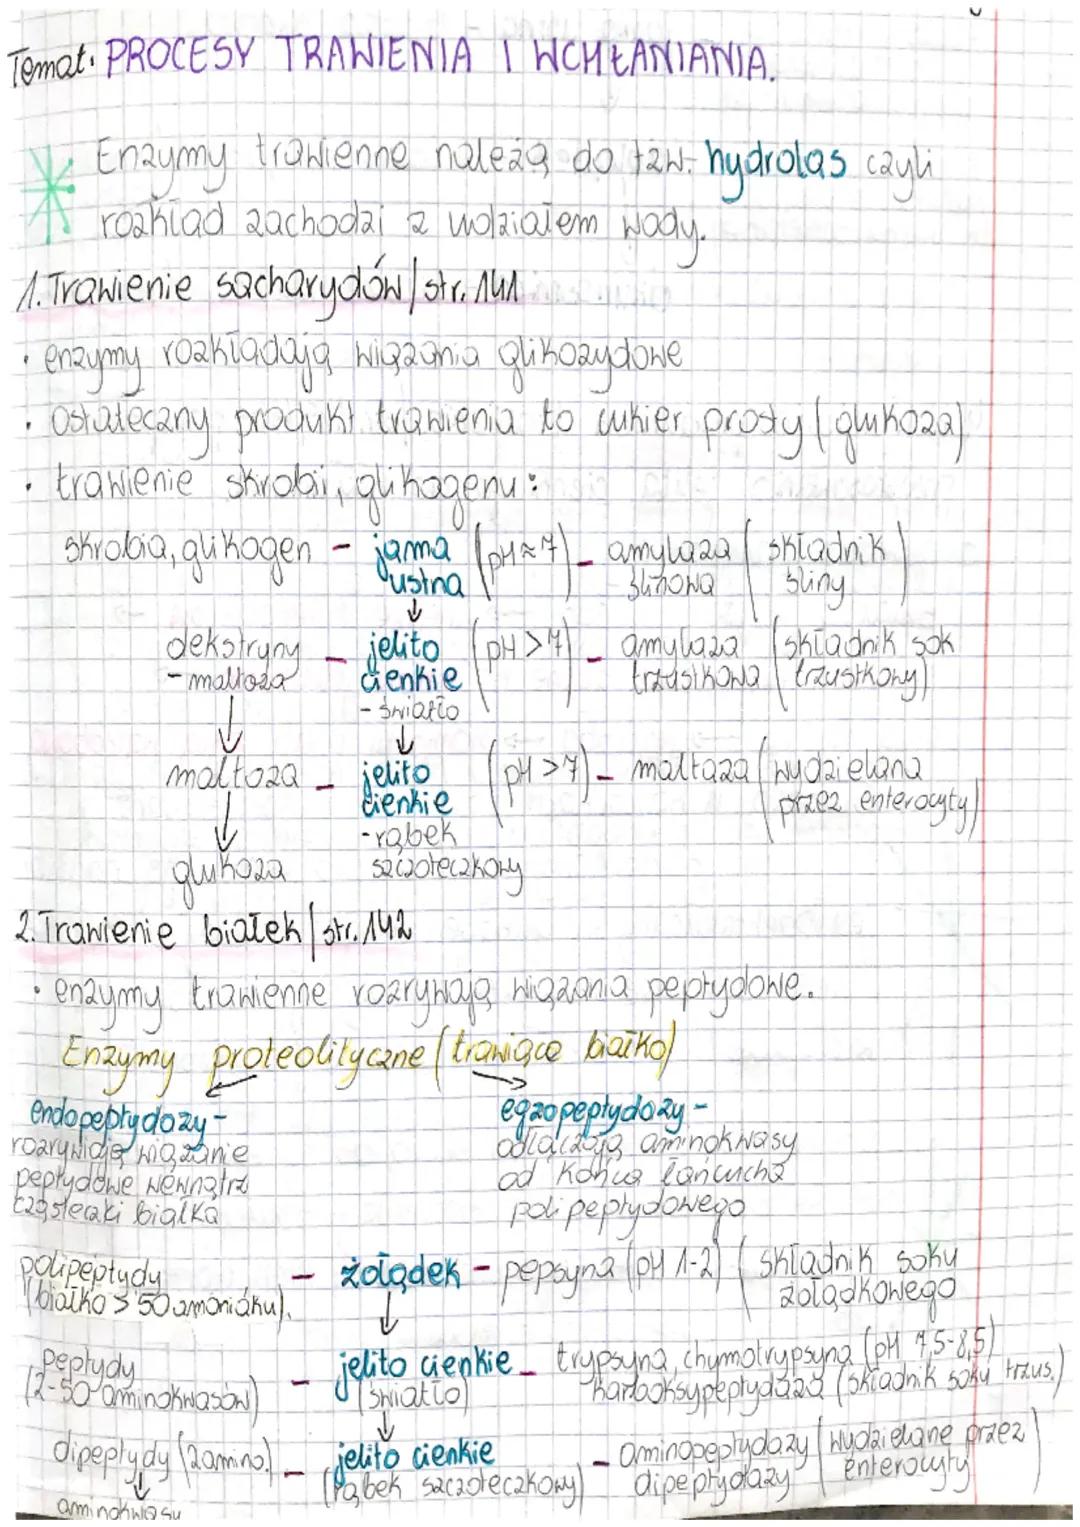 Temat: PROCESY TRAWIENIA I WCHŁANIANIA.
Enzymy trawienne należą do tzw. hydrolas czyli
rozkład zachodzi z udziałem wody.
1. Trawienie sacharydów / str. 141
• enzymy rozkładają wiązania glikozydowe
• ostateczny produkt trawienia to cukier prosty (glukoza)
• trawienie skrobii, glikogenu:
skrobia, glikogen - jama ustna (pH≈7) - amylaza ślinowa (składnik śliny)
↓
dekstryny - maltoza - jelito cienkie - światło (pH >7) - amylaza trzustkowa (składnik sok trzustkowy)
↓ ↓
maltoza - jelito cienkie - rąbek szczoteczkowy (pH >7) - maltaza (wydzielana przez enterocyty)
↓
glukoza
2. Trawienie białek / str. 142
• enzymy trawienne rozrywają wiązania peptydowe.
Enzymy proteolityczne (trawiące białko)
endopeptydazy -
rozrywają wiązanie
peptydowe wewnątrz
cząsteczki białka
egzopeptydazy -
odłączają aminokwasy
od końca łańcucha
polipeptydowego
polipeptydy (białko > 50 amoniaku). - żołądek - pepsyna (pH 1-2) (składnik soku żołądkowego
↓
peptydy (2-50 aminokwasów) - jelito cienkie (światło) - trypsyna, chymotrypsyna (pH 7,5-8,5) karboksypeptydaza (składnik soku trzus.)
↓
dipeptydy (2amino.) - jelito cienkie (rąbek szczoteczkowy) - aminopeptydazy dipeptydazy (wydzielane przez enterocyty)
↓
aminokwasy